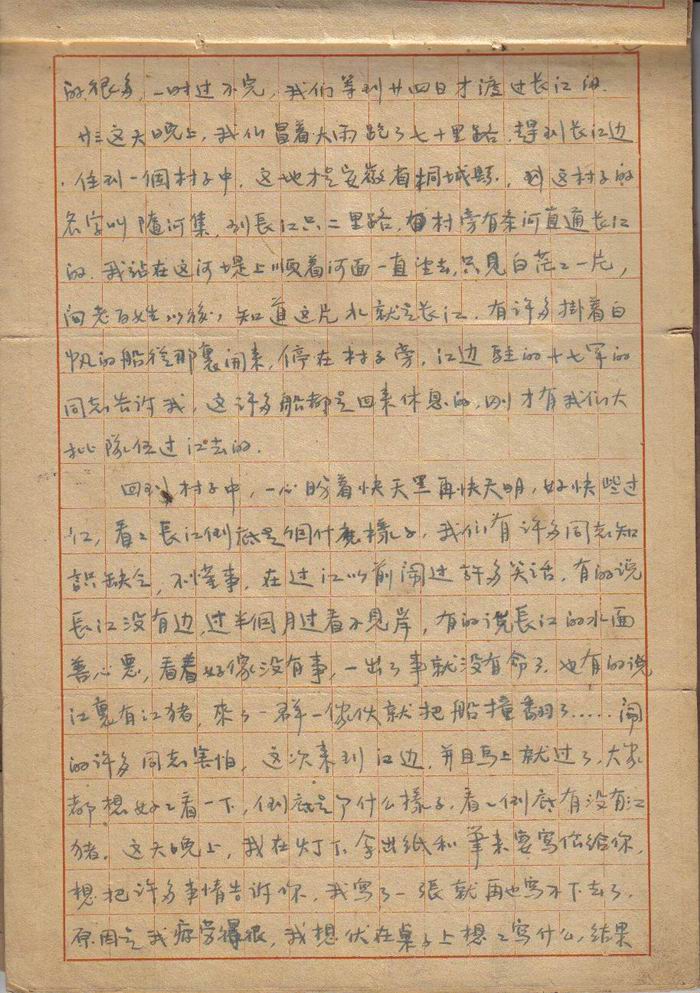 的很多，一时过不完，我们等到廿四日才渡过长江的.
廿三这天晚上，我们冒着大雨跑了七十里路，趕到长江边
，住到一個村子中，这地才是安徽省桐城縣，到这村子的
名字叫隨河集，到長江只二里路，村旁有条河直通长江
的，我站在这河堤上順着河面一直望去，只見白茫〻一片，
问老百姓以後，知道这片水就是长江，有许多掛着白
帆的船從那裏開来，停在村子旁，江边駐的十七军的
同志告诉我，这许多船都是回来休息的，刚才有我们大
批隊伍过江去的.
回到村子中，一心盼着快天黑再快天明，好快些过
江，看〻長江倒底是個什麽樣子，我们有许多同志知
識缺乏，不懂事，在过江以前鬧过許多笑话，有的说
長江没有边，过半個月过看不見岸，有的说長江的水面
善心惡，看着好像没有事，一出了事就没有命了，也有的说
江裏有江猪，來了一群一傢伙就把船撞翻了……闹
的许多同志害怕，这次来到江边，并且馬上就过了，大家
都想好〻看一下，倒底是个什么樣子，看〻倒底有没有江
猪，这天晚上，我在灯下拿出纸和筆来要写信给你，
想把许多事情告诉你，我写了一張就再也写不下去了，
原因是我疲劳得很，我想伏在桌子上想〻写什么，结果